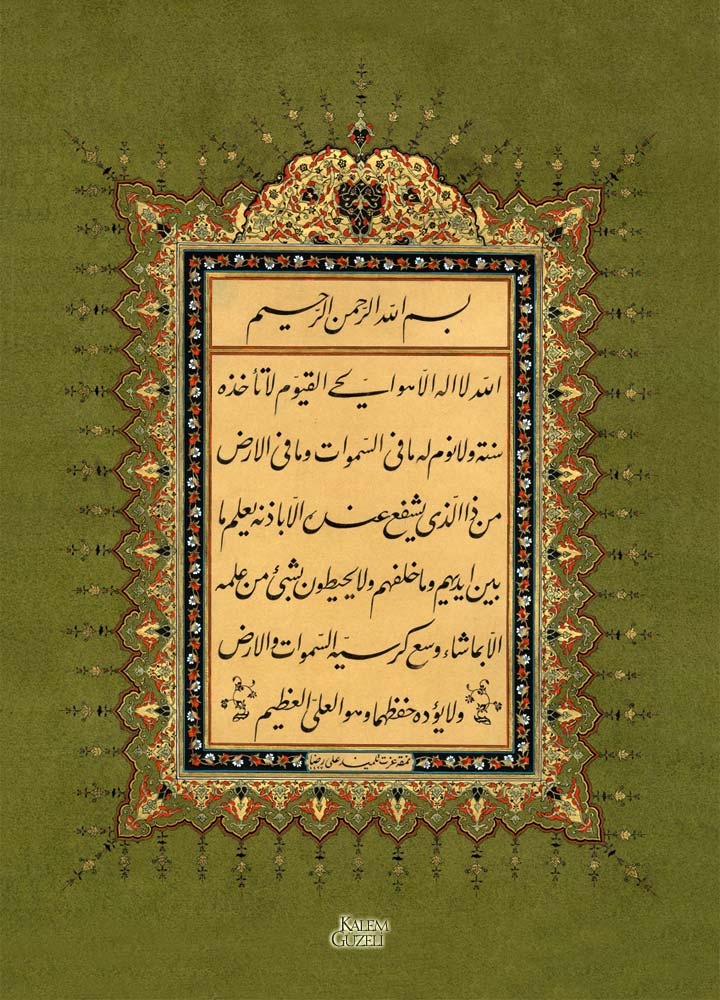 بسم الله الرحمن الرحيم
الله لا اله الا هو الحي القيوم لا تأخذه
سنة ولا نوم له ما فى السموات وما فى الارض
من ذا الذى يشفع عنده الا باذنه يعلم ما
بين ايديهم وما خلفهم ولا يحيطون بشئ من علمه
الا بما شاء وسع كرسيه السموات والارض
ولا يؤده حفظهما وهو العلى العظيم
نمقه عزت تلميذ على رضا
KALEM
GÜZELİ